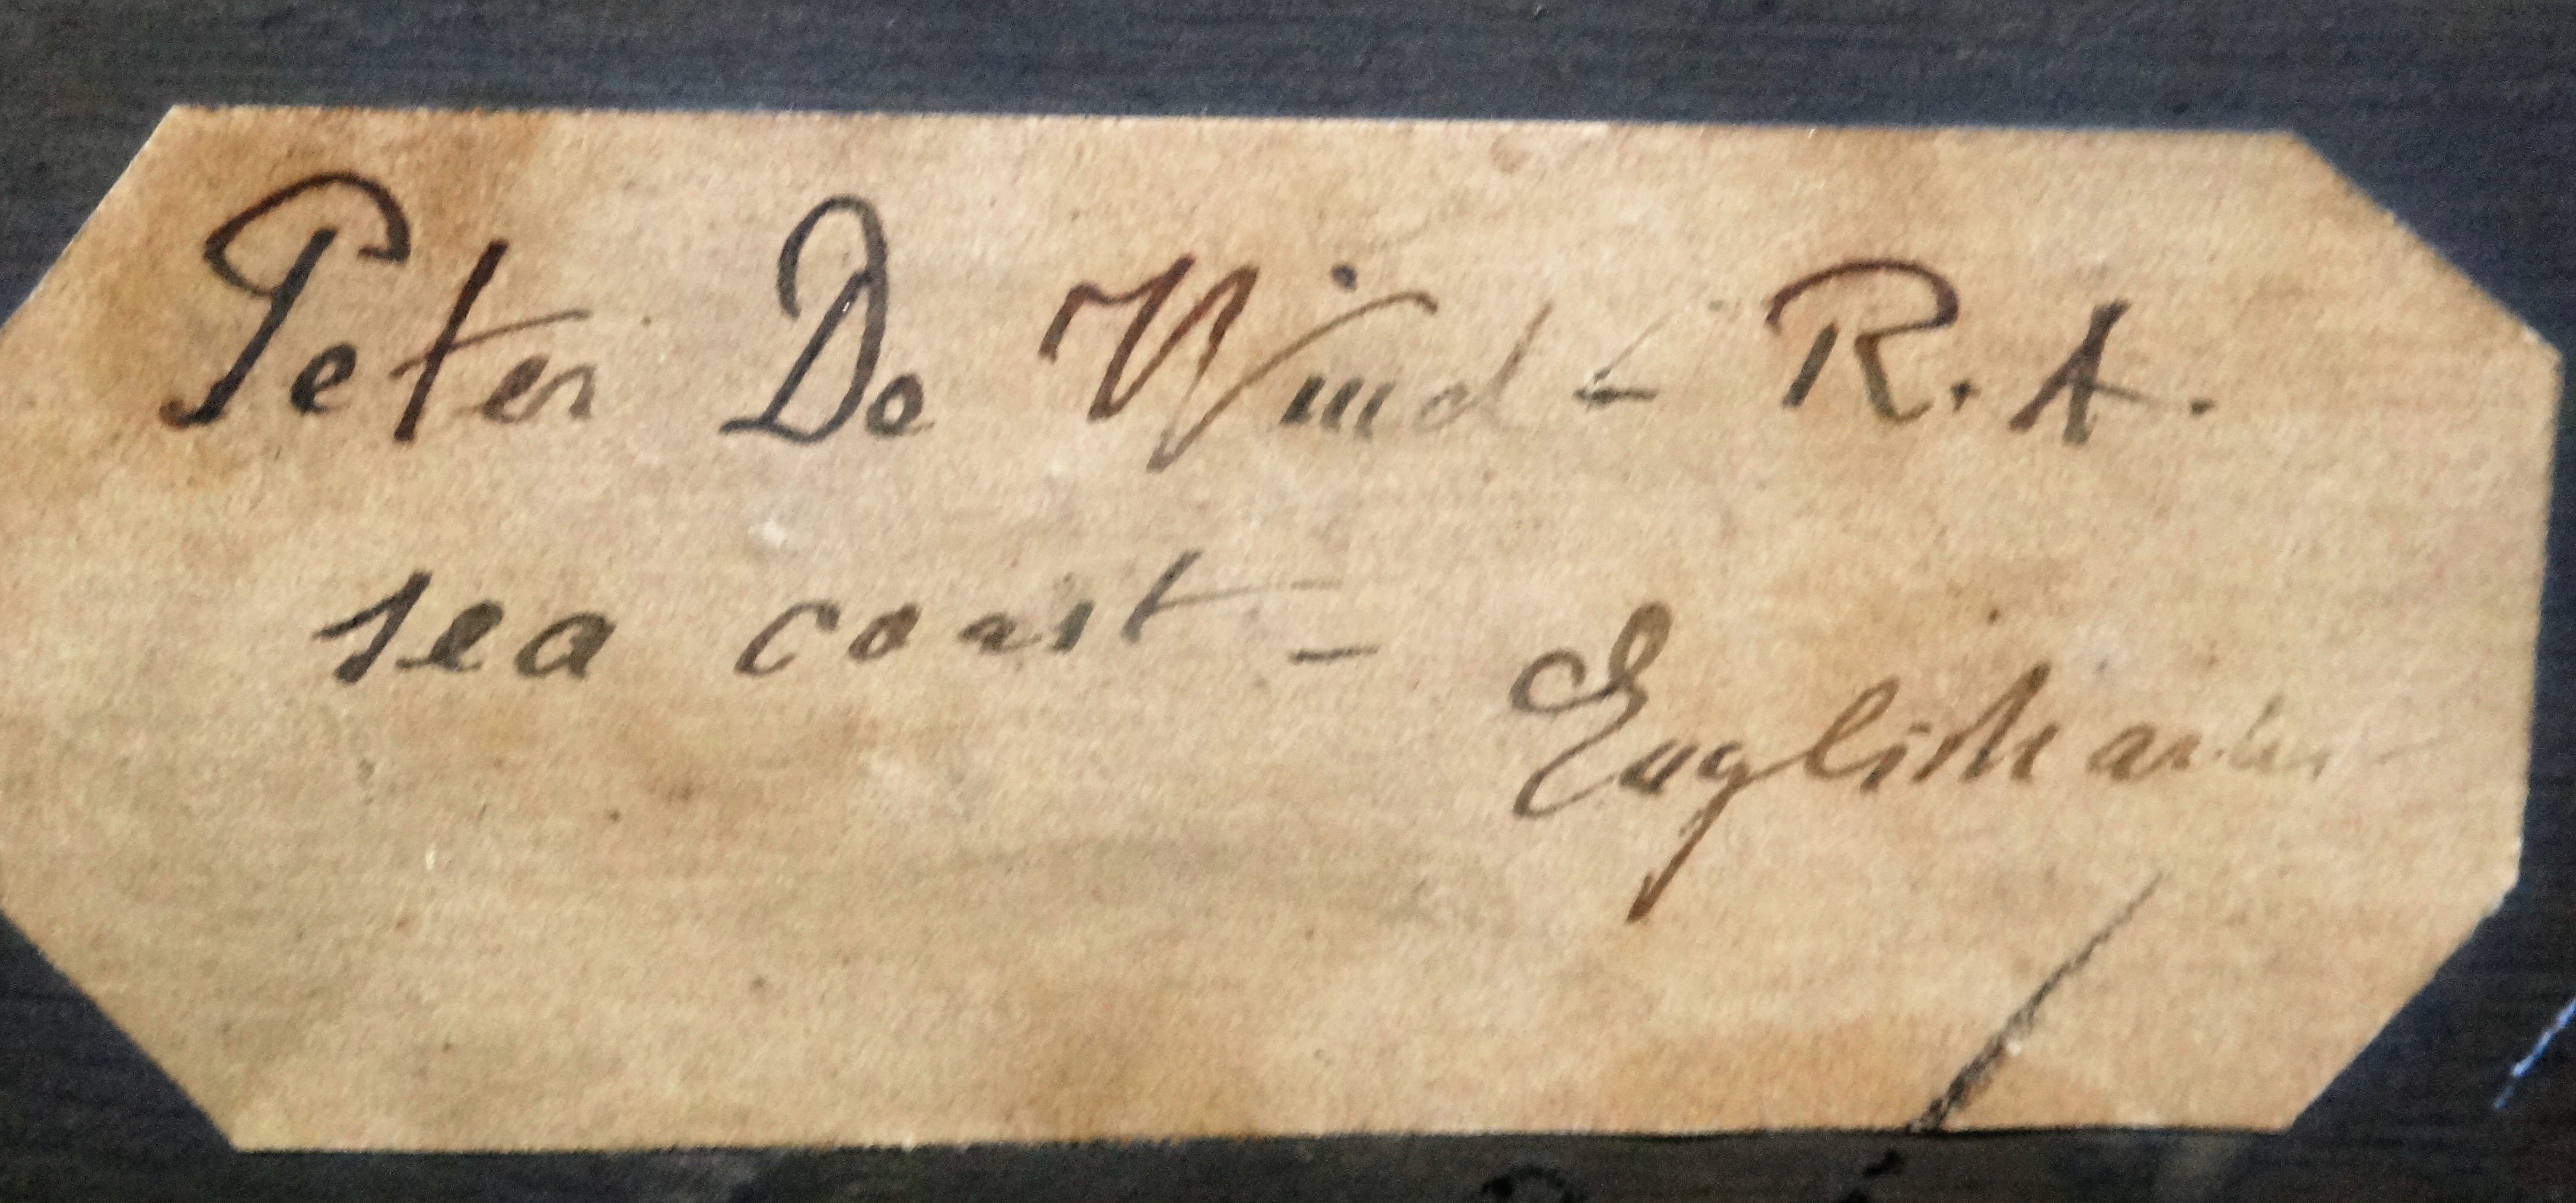 Peter De Wind - R. A.
sea coast -
English artist